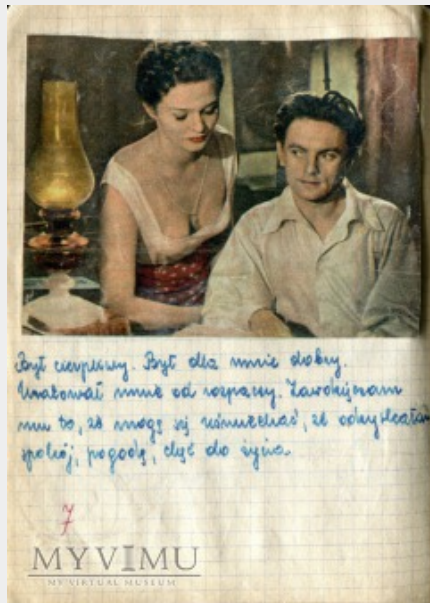 Był cierpliwy. Był dla mnie dobry.
Uratował mnie od rozpaczy. Zawdzięczam
mu to, że mogę się uśmiechać, że odzyskałam
spokój, pogodę, chęć do życia.
7
MYVIMU
MY VIRTUAL MUSEUM